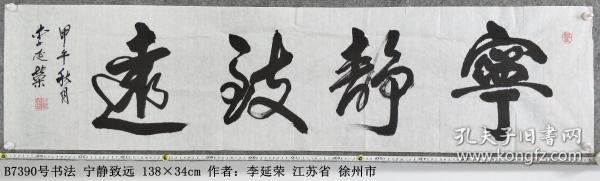 寧靜致遠
甲午秋月
李延荣
B7390号书法 宁静致远 138×34cm 作者：李延荣 江苏省 徐州市
孔夫子旧书网
www.kongfz.com